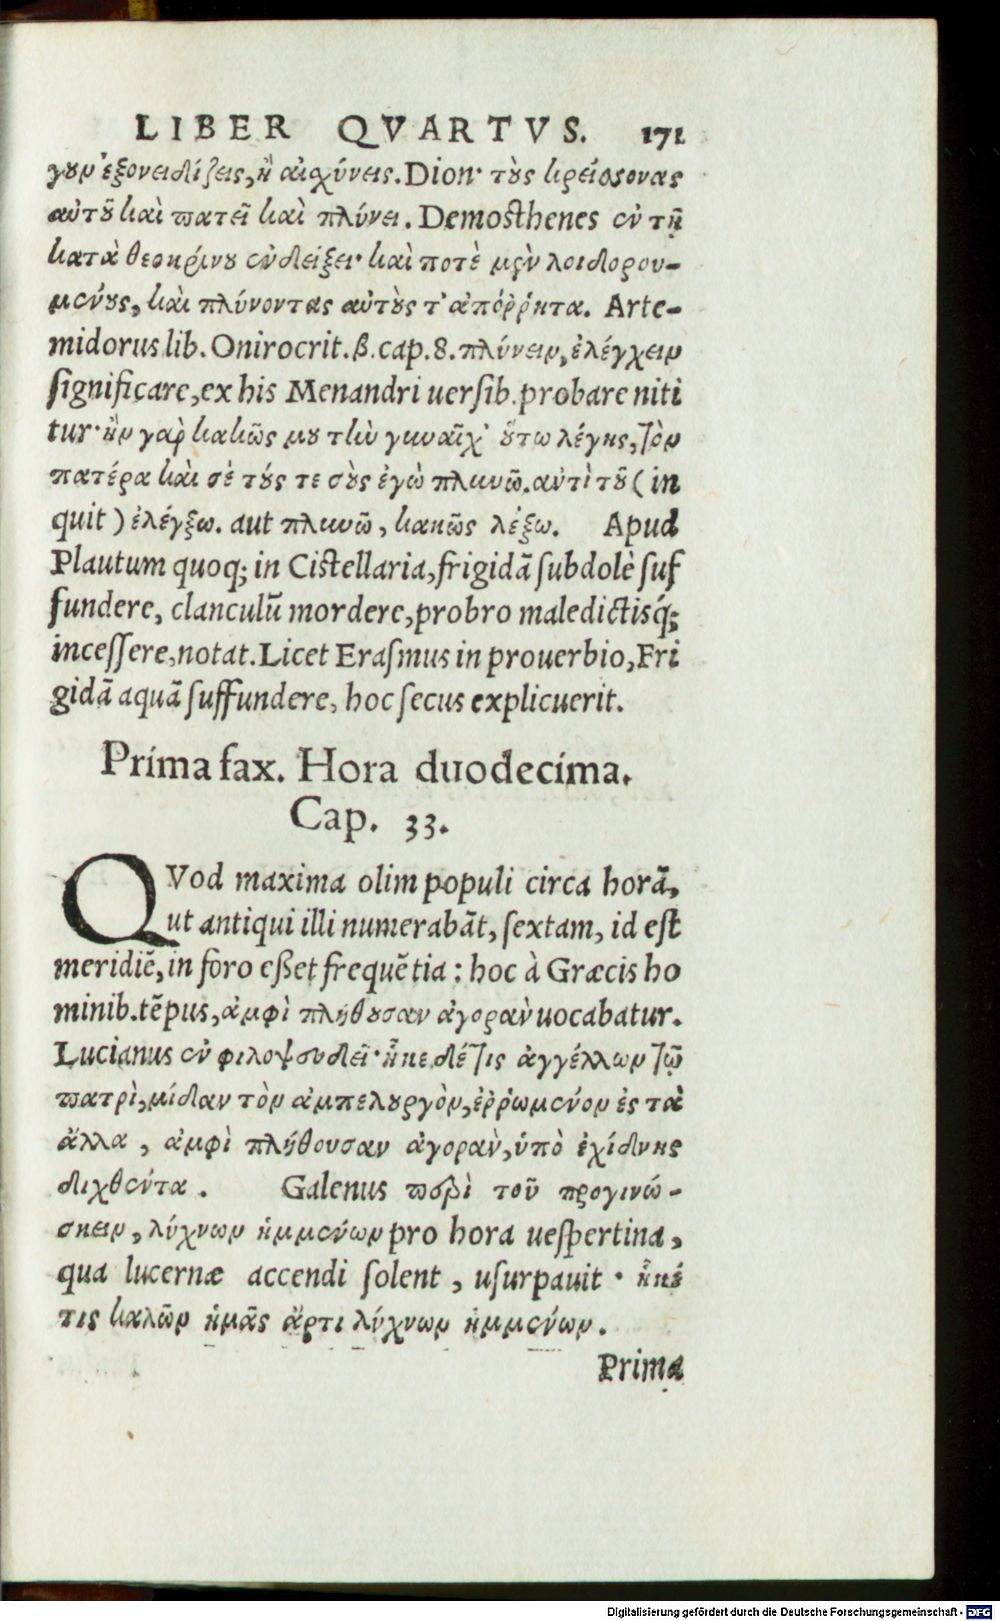 LIBER QVARTVS. 171
γουν ἐξονειδίζεις, ἢ αἰσχύνεις. Dion· τοὺς κρείσσονας
αὐτοῦ καὶ πατεῖ καὶ πλύνει. Demosthenes ἐν τῇ
κατὰ θεοκρίνου ἐνδείξει· καὶ ποτὲ μὲν λοιδορου-
μένους, καὶ πλύνοντας αὐτοὺς τ' ἀπόῤῥητα. Arte-
midorus lib. Onirocrit. β. cap. 8. πλύνειν, ἐλέγχειν
significare, ex his Menandri uersib. probare niti
tur· ἢν γὰρ κακῶς μου τὴν γυναῖχ' οὕτω λέγῃς, τὸν
πατέρα καὶ σὲ τούς τε σοὺς ἐγὼ πλυνῶ. ἀντὶ τοῦ (in
quit) ἐλέγξω. aut πλυνῶ, κακῶς λέξω. Apud
Plautum quoq; in Cistellaria, frigidã subdolè suf
fundere, clanculũ mordere, probro maledictisq́;
incessere, notat. Licet Erasmus in prouerbio, Fri
gidã aquã suffundere, hoc secus explicuerit.
Prima fax. Hora duodecima.
Cap. 33.
QVod maxima olim populi circa horã,
ut antiqui illi numerabãt, sextam, id est
meridiẽ, in foro eßet frequẽtia: hoc à Græcis ho
minib. tẽpus, ἀμφὶ πλήθουσαν ἀγορὰν uocabatur.
Lucianus ἐν φιλοψευδεῖ· ἧκε δέ τις ἀγγέλλων τῷ
πατρὶ, μίδαν τὸν ἀμπελουργὸν, ἐῤῥωμένον ἐς τὰ
ἄλλα, ἀμφὶ πλήθουσαν ἀγορὰν, ὑπὸ ἐχίδνης
διχθέντα. Galenus περὶ τοῦ προγινώ-
σκειν, λύχνων ἡμμένων pro hora uespertina,
qua lucernæ accendi solent, usurpauit· ἧκέ
τις καλῶν ἡμᾶς ἄρτι λύχνων ἡμμένων.
Prima
Digitalisierung gefördert durch die Deutsche Forschungsgemeinschaft - DFG